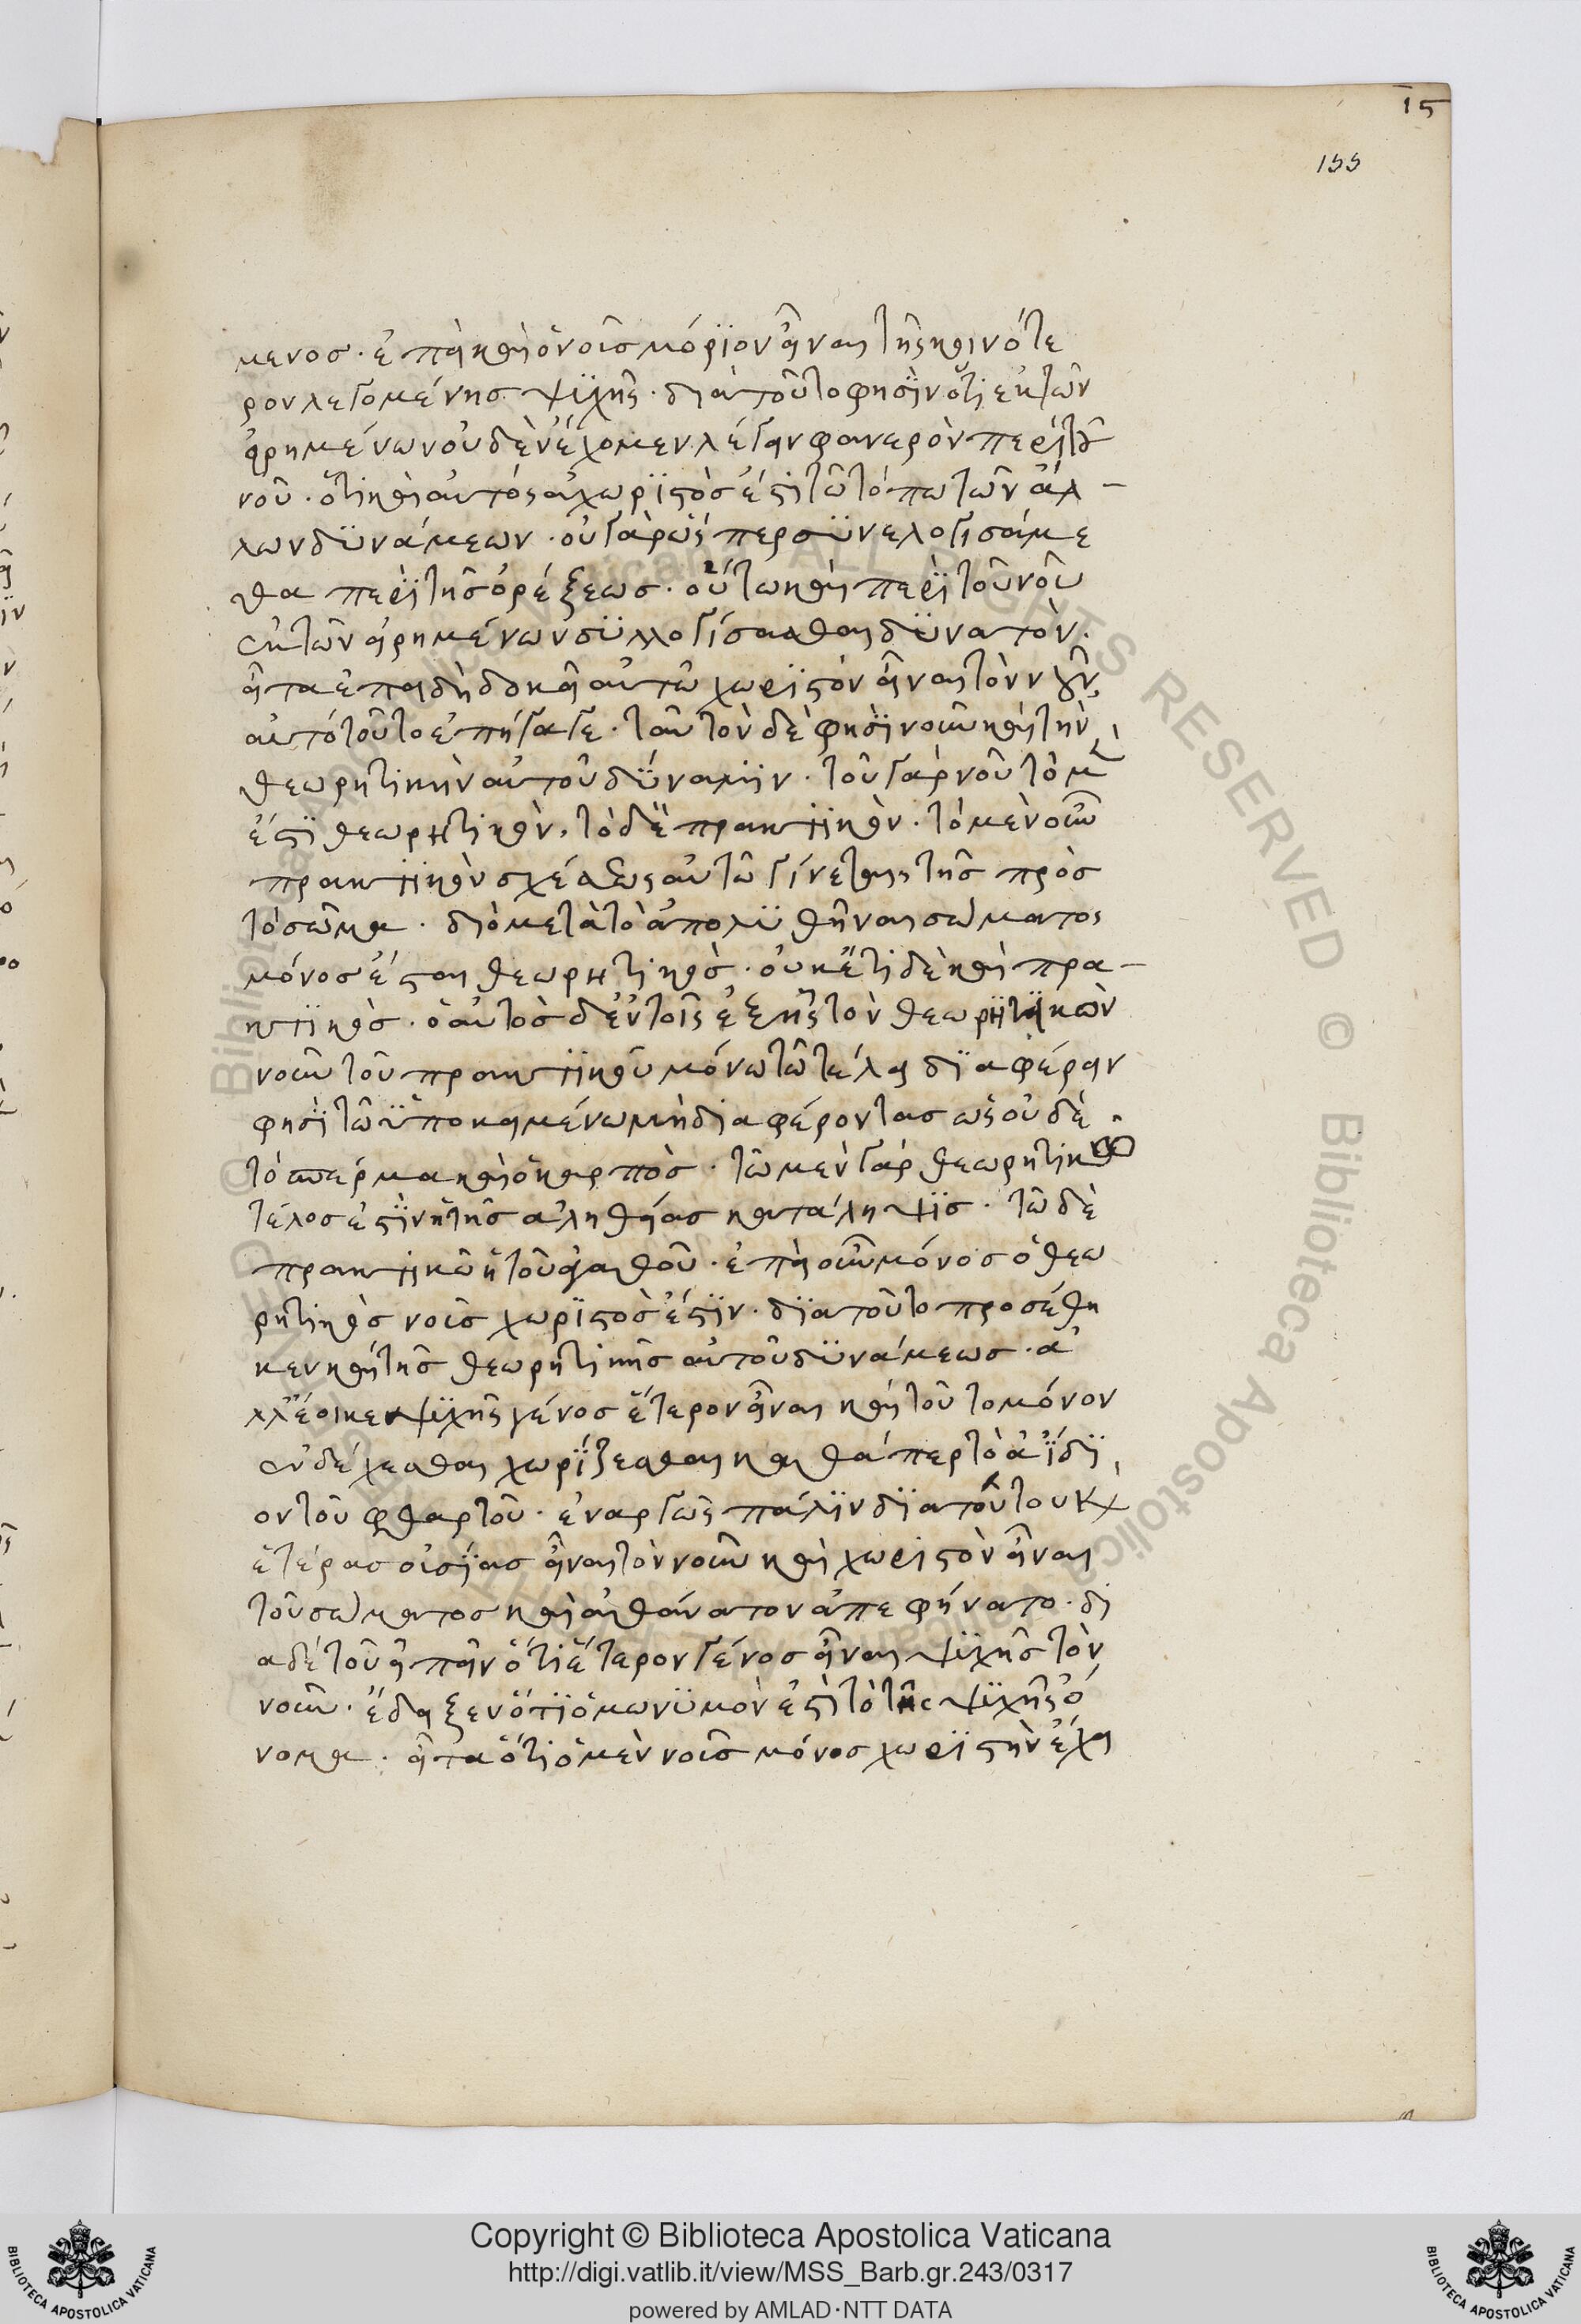 ις
155
μενος· ἐπεὶ καὶ ὁ νοῦς μόριον εἶναι τῆς κοινότε
ρον λεγομένης ψϋχῆς· διὰ τοῦτο φησὶν ὅτι ἐκ τῶν
εἰρημένων οὐδὲν ἔχομεν λέγειν φανερὸν περὶ τοῦ
νοῦ· ὅτι καὶ αὐτὸς ἀχωρϊστὸς ἐστὶ τῶ τόπω τῶν ἄλ
λων δϋνάμεων· οὐ γὰρ ὥσπερ σϋνελογισάμε
θα περὶ τῆς ὀρέξεως· οὕτω καὶ περὶ τοῦ νοῦ
ἐκ τῶν εἰρημένων σϋλλογίσασθαι δϋνατὸν·
εἶτα ἐπειδὴ δοκεῖ αὐτῶ χωριστὸν εἶναι τὸν νοῦν
αὐτὸ τοῦτο ἐπήγαγε· ταυτὸν δὲ φησὶ νοῦν καὶ τὴν
θεωρητικὴν αὐτοῦ δϋναμϊν· τοῦ γὰρ νοῦ τὸ μὲν
ἐστϊ θεωρητικὸν, τὸ δὲ πρακτϊκὸν· τὸ μὲν οὖν
πρακτϊκὸν σχέσεως αὐτῶ γίνεται τῆς πρὸς
τὸ σῶμα· διὸ μετὰ τὸ ἀπολϋθῆναι σώματος
μόνος ἔσται θεωρητικὸς· οὐκέτι δὲ καὶ πρα
κτϊκὸς· ὁ αὐτὸς δ' ἐν τοῖς ἐξῆς τὸν θεωρητϊκὼν
νοῦν τοῦ πρακτϊκοῦ μόνω τῶ τέλει δϊαφέρειν
φησϊ τῶ ὑποκειμένω μὴ διαφέροντας ὡς οὐδὲ
τὸ σπέρμα καὶ ὁ καρπὸς· τῶ μὲν γὰρ θεωρητικῶ
τέλος ἐστϊν ἡ τῆς ἀληθείας κατάληψϊς· τῶ δὲ
πρακτικῶ ἡ τοῦ ἀγαθοῦ· ἐπεὶ οὖν μόνος ὁ θεω
ρητικὸς νοῦς χωρϊστὸς ἐστϊν· δϊὰ τοῦτο προσέθη
κεν καὶ τῆς θεωρητικῆς αὐτοῦ δϋνάμεως· ἀ
λλ' ἔοικε ψϋχῆς γένος ἕτερον εἶναι καὶ τοῦτο μόνον
ἐνδέχεσθαι χωρϊζεσθαι καθάπερ τὸ ἀΐδϊ
ον τοῦ φθαρτοῦ· ἐναργῶς πάλϊν δϊὰ τούτου καὶ
ἑτέρας οὐσίας εἶναι τὸν νοῦν καὶ χωριστὸν εἶναι
τοῦ σώματος καὶ ἀθάνατον ἀπεφήνατο· δι
ὰ δὲ τοῦ εἰπεῖν ὅτι ἕτερον γένος εἶναι ψϋχῆς τὸν
νοῦν· ἔδειξεν ὅτϊ ὁμωνϋμὸν ἐστὶ τὸ τῆς ψϋχῆς ὄ
νομα· εἶτα ὅτι ὁ μὲν νοῦς μόνος χωριστὴν ἔχει
Copyright © Biblioteca Apostolica Vaticana
http://digi.vatlib.it/view/MSS_Barb.gr.243/0317
powered by AMLAD·NTT DATA